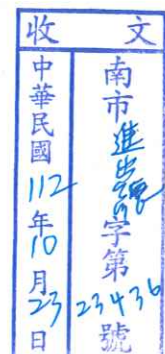 收文
南市進出字第23436號
中華民國112年10月23日